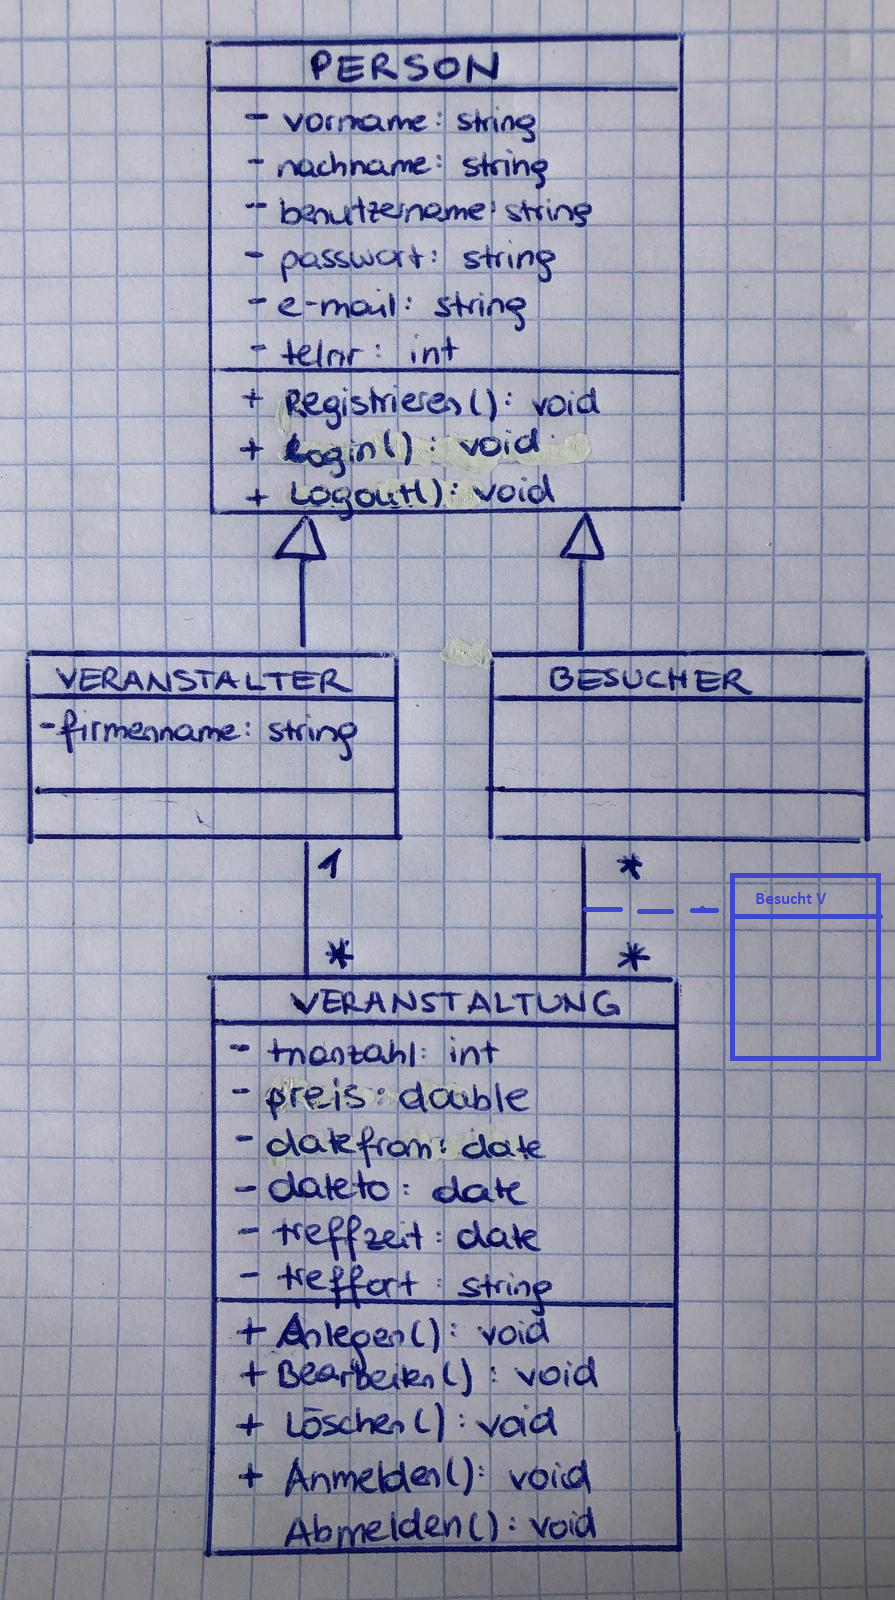 PERSON
- vorname: string
- nachname: string
- benutzername: string
- passwort: string
- e-mail: string
- telnr: int
+ Registrieren(): void
+ Login(): void
+ Logout(): void
VERANSTALTER
- firmenname: string
BESUCHER
1
*
*
*
Besucht V
VERANSTALTUNG
- tnanzahl: int
- preis: double
- datefrom: date
- dateto: date
- treffzeit: date
- treffort: string
+ Anlegen(): void
+ Bearbeiten(): void
+ Löschen(): void
+ Anmelden(): void
Abmelden(): void